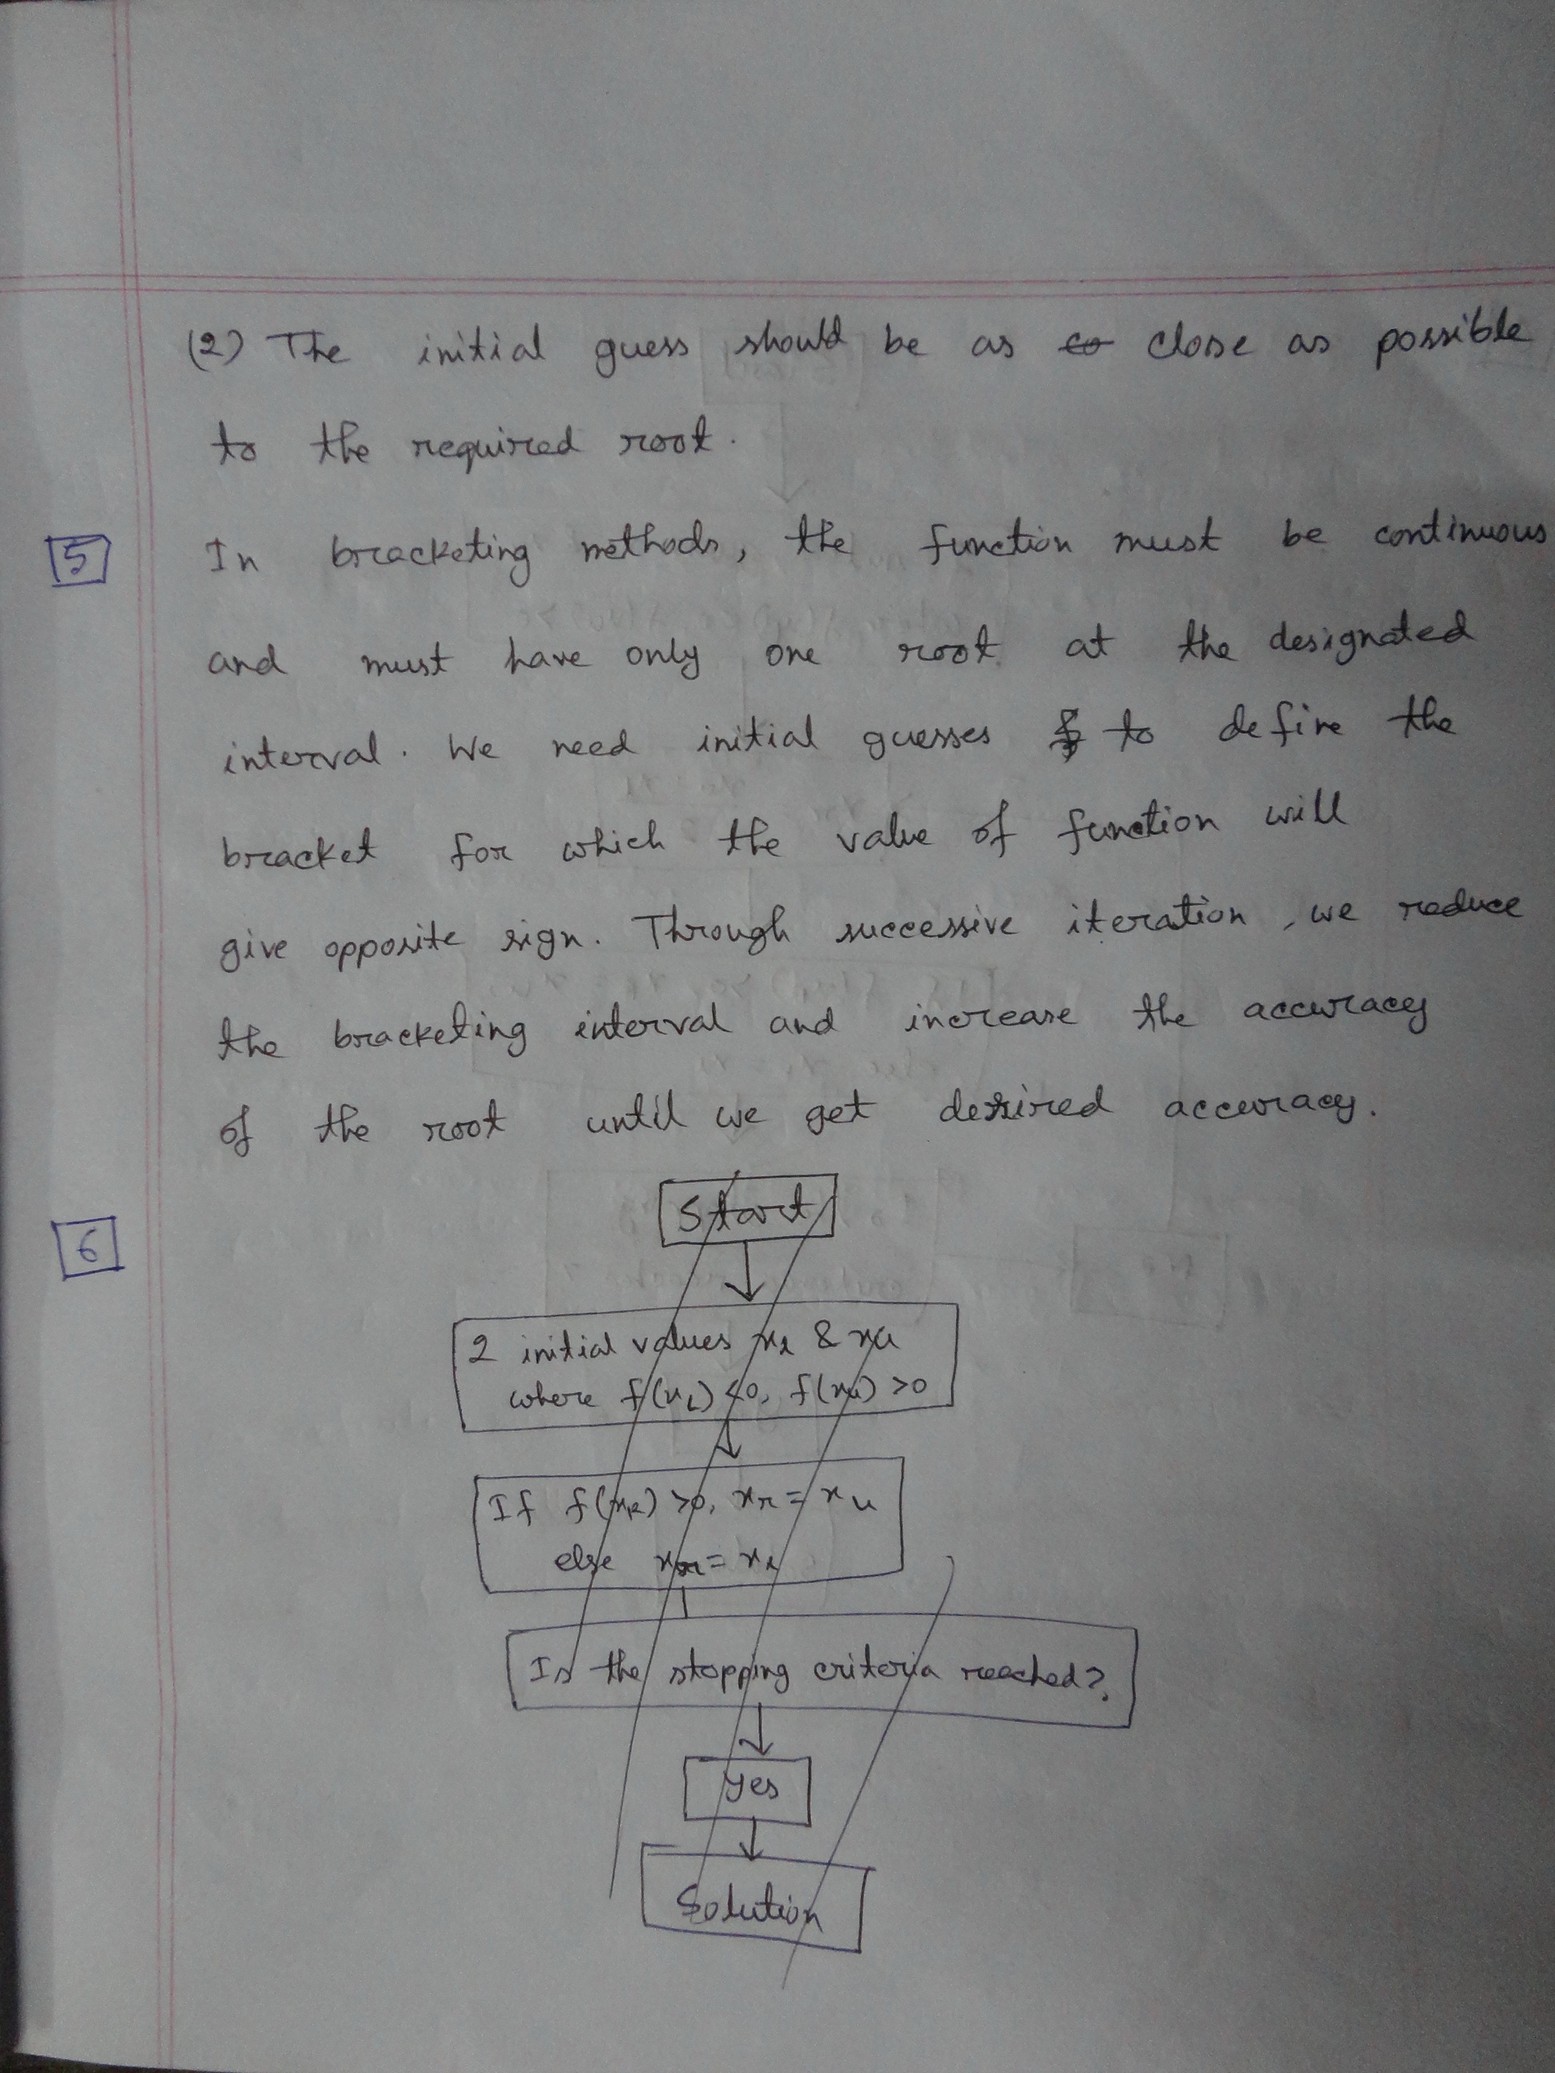 (2) The initial guess should be as close as possible
to the required root.
5
In bracketing methods, the function must be continuous
and must have only one root at the designated
interval. We need initial guesses to define the
bracket for which the value of function will
give opposite sign. Through successive iteration, we reduce
the bracketing interval and increase the accuracy
of the root until we get desired accuracy.
6
Start
2 initial values x_l & x_u
where f(x_L) <0, f(x_u) >0
If f(x_R) >0, x_r = x_u
else x_r = x_l
Is the stopping criteria reached?
Yes
Solution